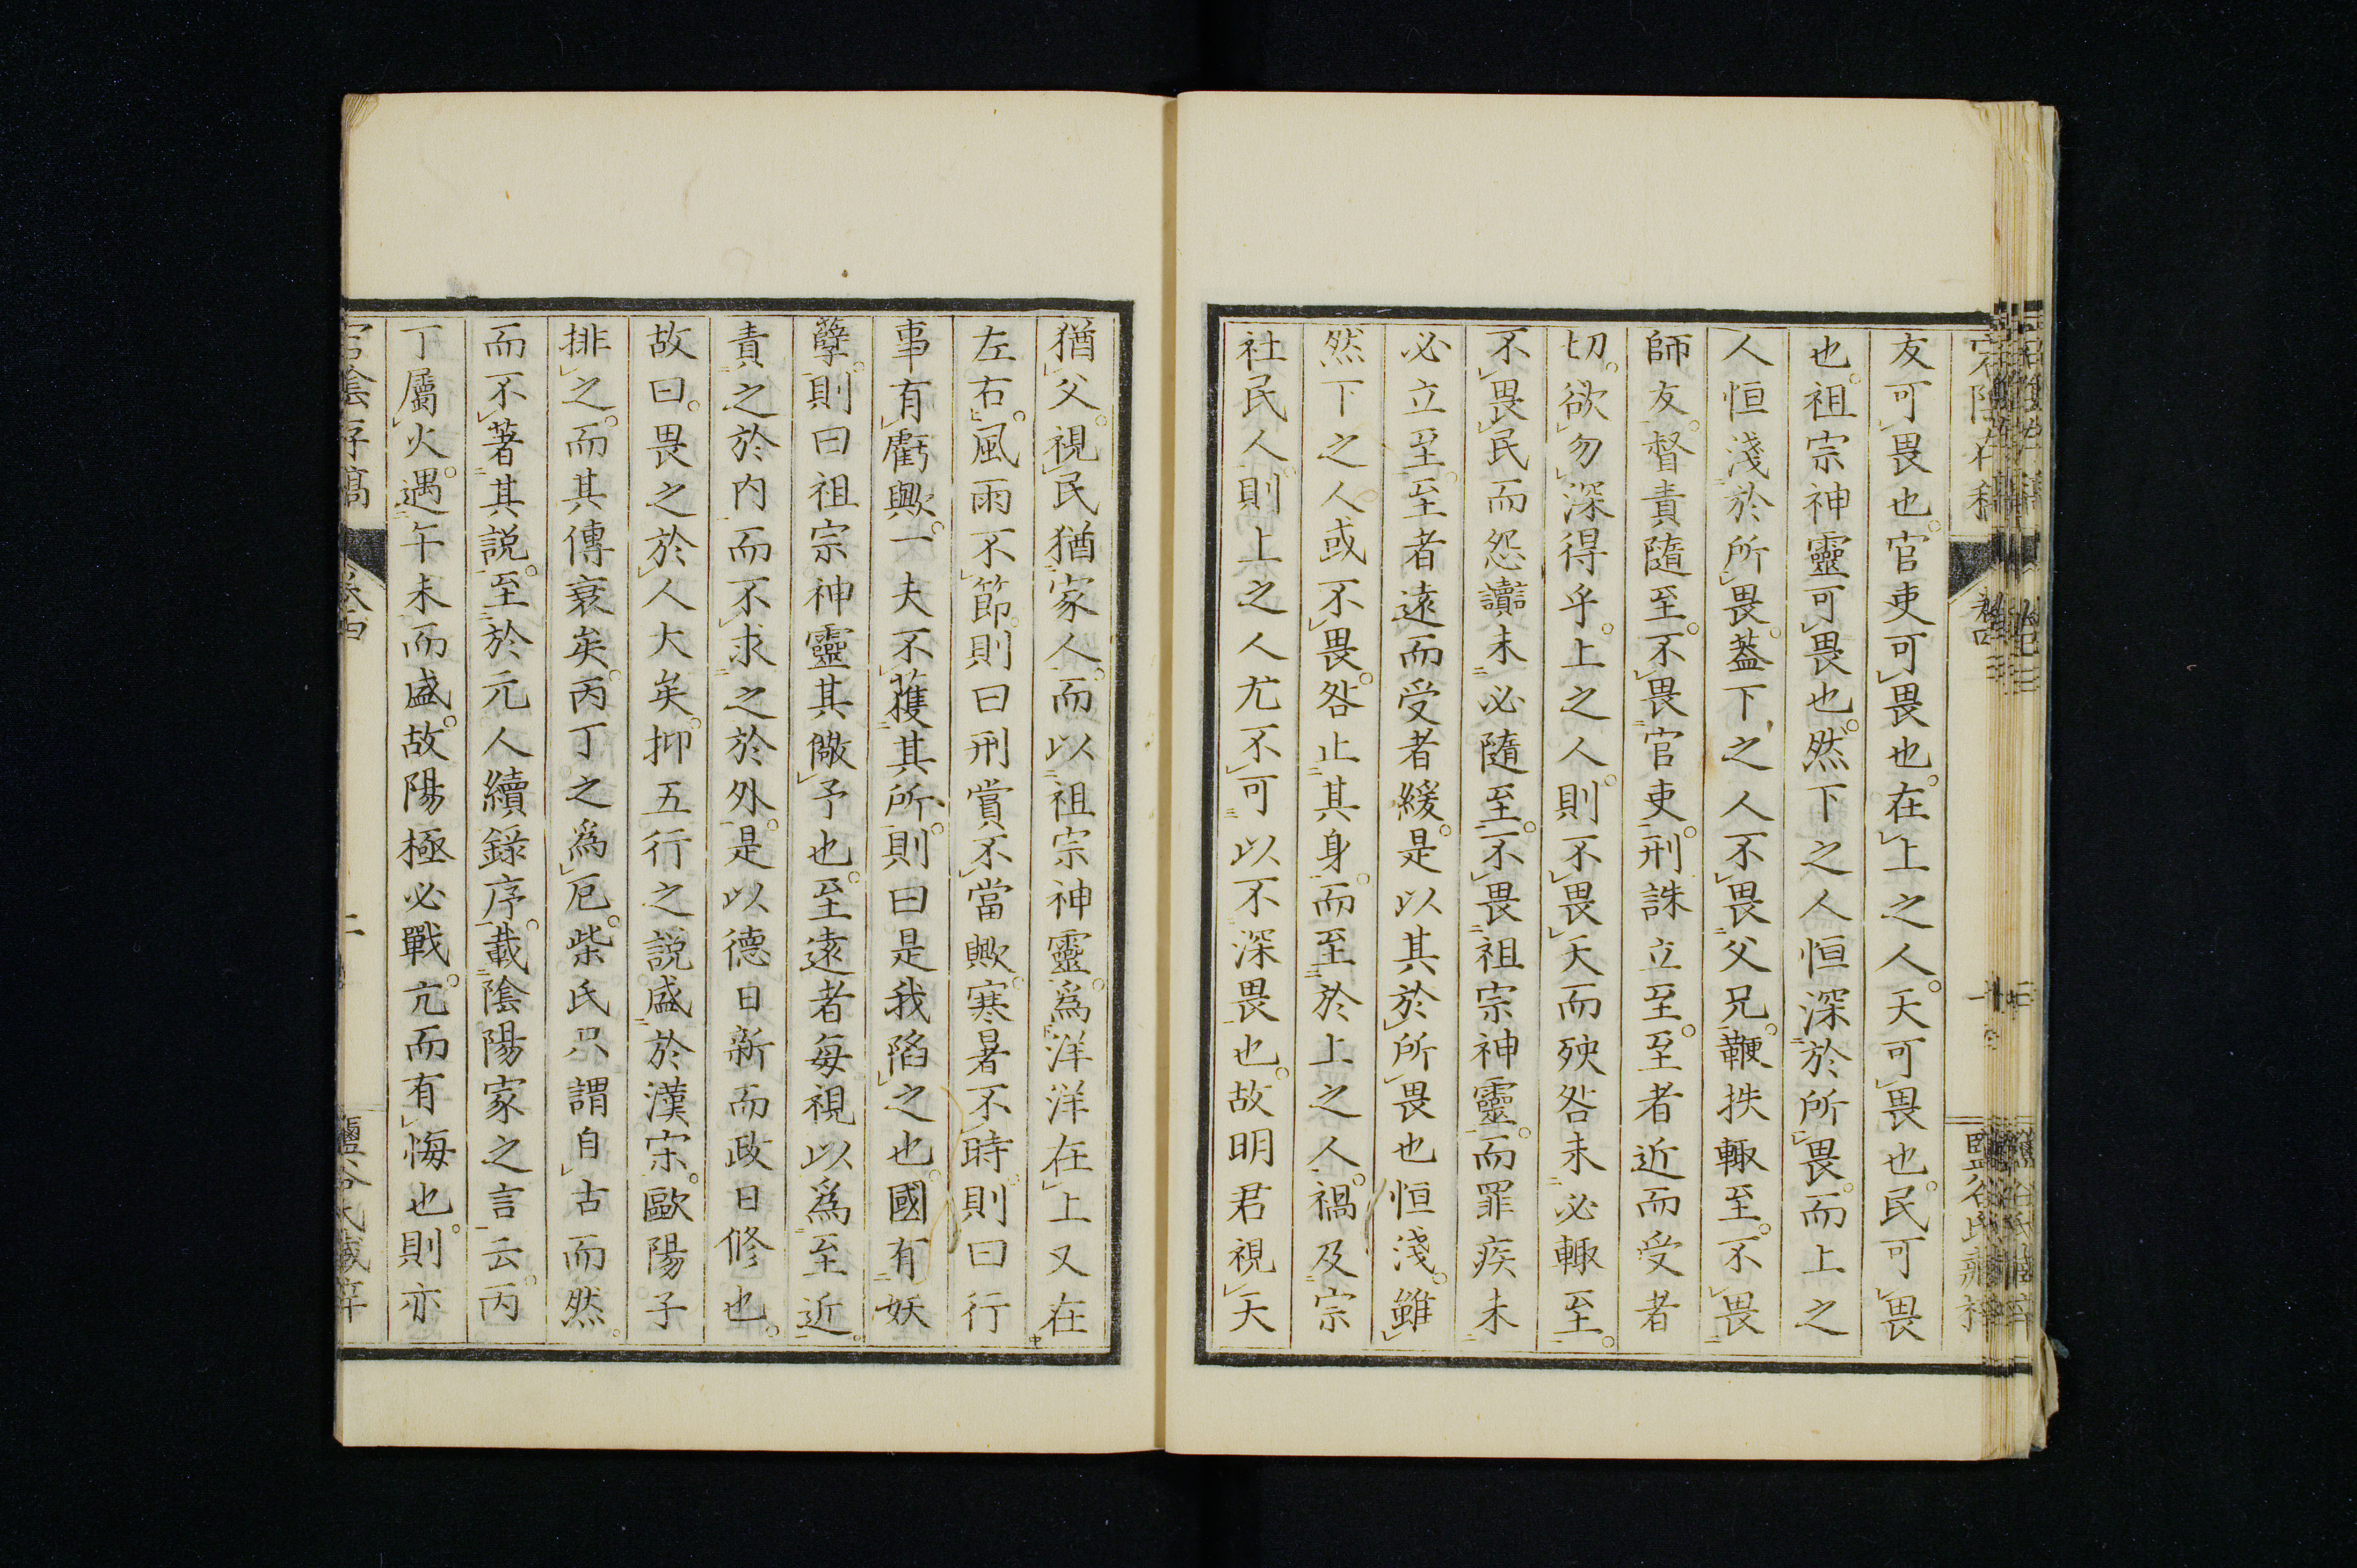 友可畏也。官吏可畏也。在上之人。天可畏也。民可畏
也。祖宗神靈可畏也。然下之人恒深於所畏。而上之
人恒淺於所畏。蓋下之人不畏父兄。鞭抶輙至。不畏
師友。督責隨至。不畏官吏。刑誅立至。至者近而受者
切。欲勿深得乎。上之人。則不畏天而殃咎未必輙至。
不畏民而怨讟未必隨至。不畏祖宗神靈。而罪疾未
必立至。至者遠而受者緩。是以其於所畏也恒淺。雖
然下之人。或不畏。咎止其身。而至於上之人。禍及宗
社民人。則上之人尤不可以不深畏也。故明君視天
猶父。視民猶家人。而以祖宗神靈。爲洋洋在上又在
左右。風雨不節。則曰刑賞不當歟。寒暑不時。則曰行
事有虧歟。一夫不獲其所。則曰是我陷之也。國有妖
孽。則曰祖宗神靈其儆予也。至遠者每視以爲至近。
責之於内。而不求之於外。是以德日新而政日修也。
故曰。畏之於人大矣。抑五行之説盛於漢宋。歐陽子
排之。而其傳衰矣。丙丁之爲厄。柴氏只謂自古而然。
而不著其説。至於元人續錄序。載陰陽家之言云。丙
丁屬火。遇午未而盛。故陽極必戰。亢而有悔也。則亦
宕陰存稿 卷四 二